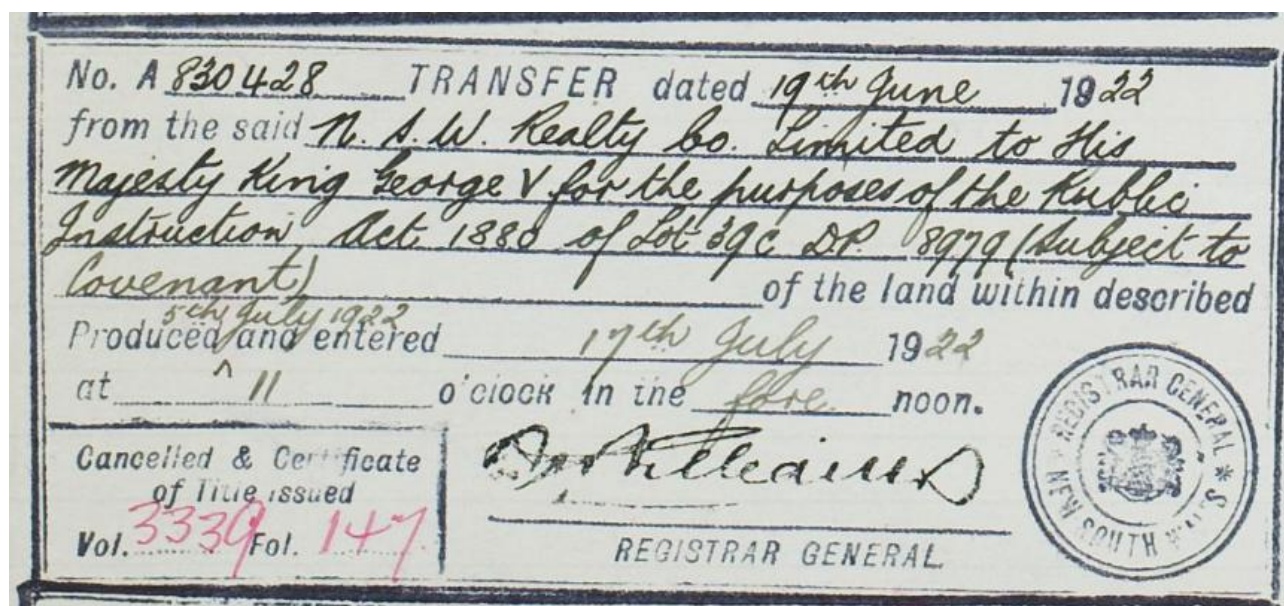 No. A 830428 TRANSFER dated 19th June 1922
from the said N. S. W. Realty Co. Limited to His
Majesty King George V for the purposes of the Public
Instruction Act 1880 of Lot 39c D.P. 8979 (Subject to
Covenant) of the land within described
5th July 1922
Produced and entered 17th July 1922
at ^ 11 o'clock in the fore noon.
Cancelled & Certificate
of Title issued
Vol. 3339 Fol. 147.
Williams
REGISTRAR GENERAL
REGISTRAR GENERAL * NEW SOUTH WALES